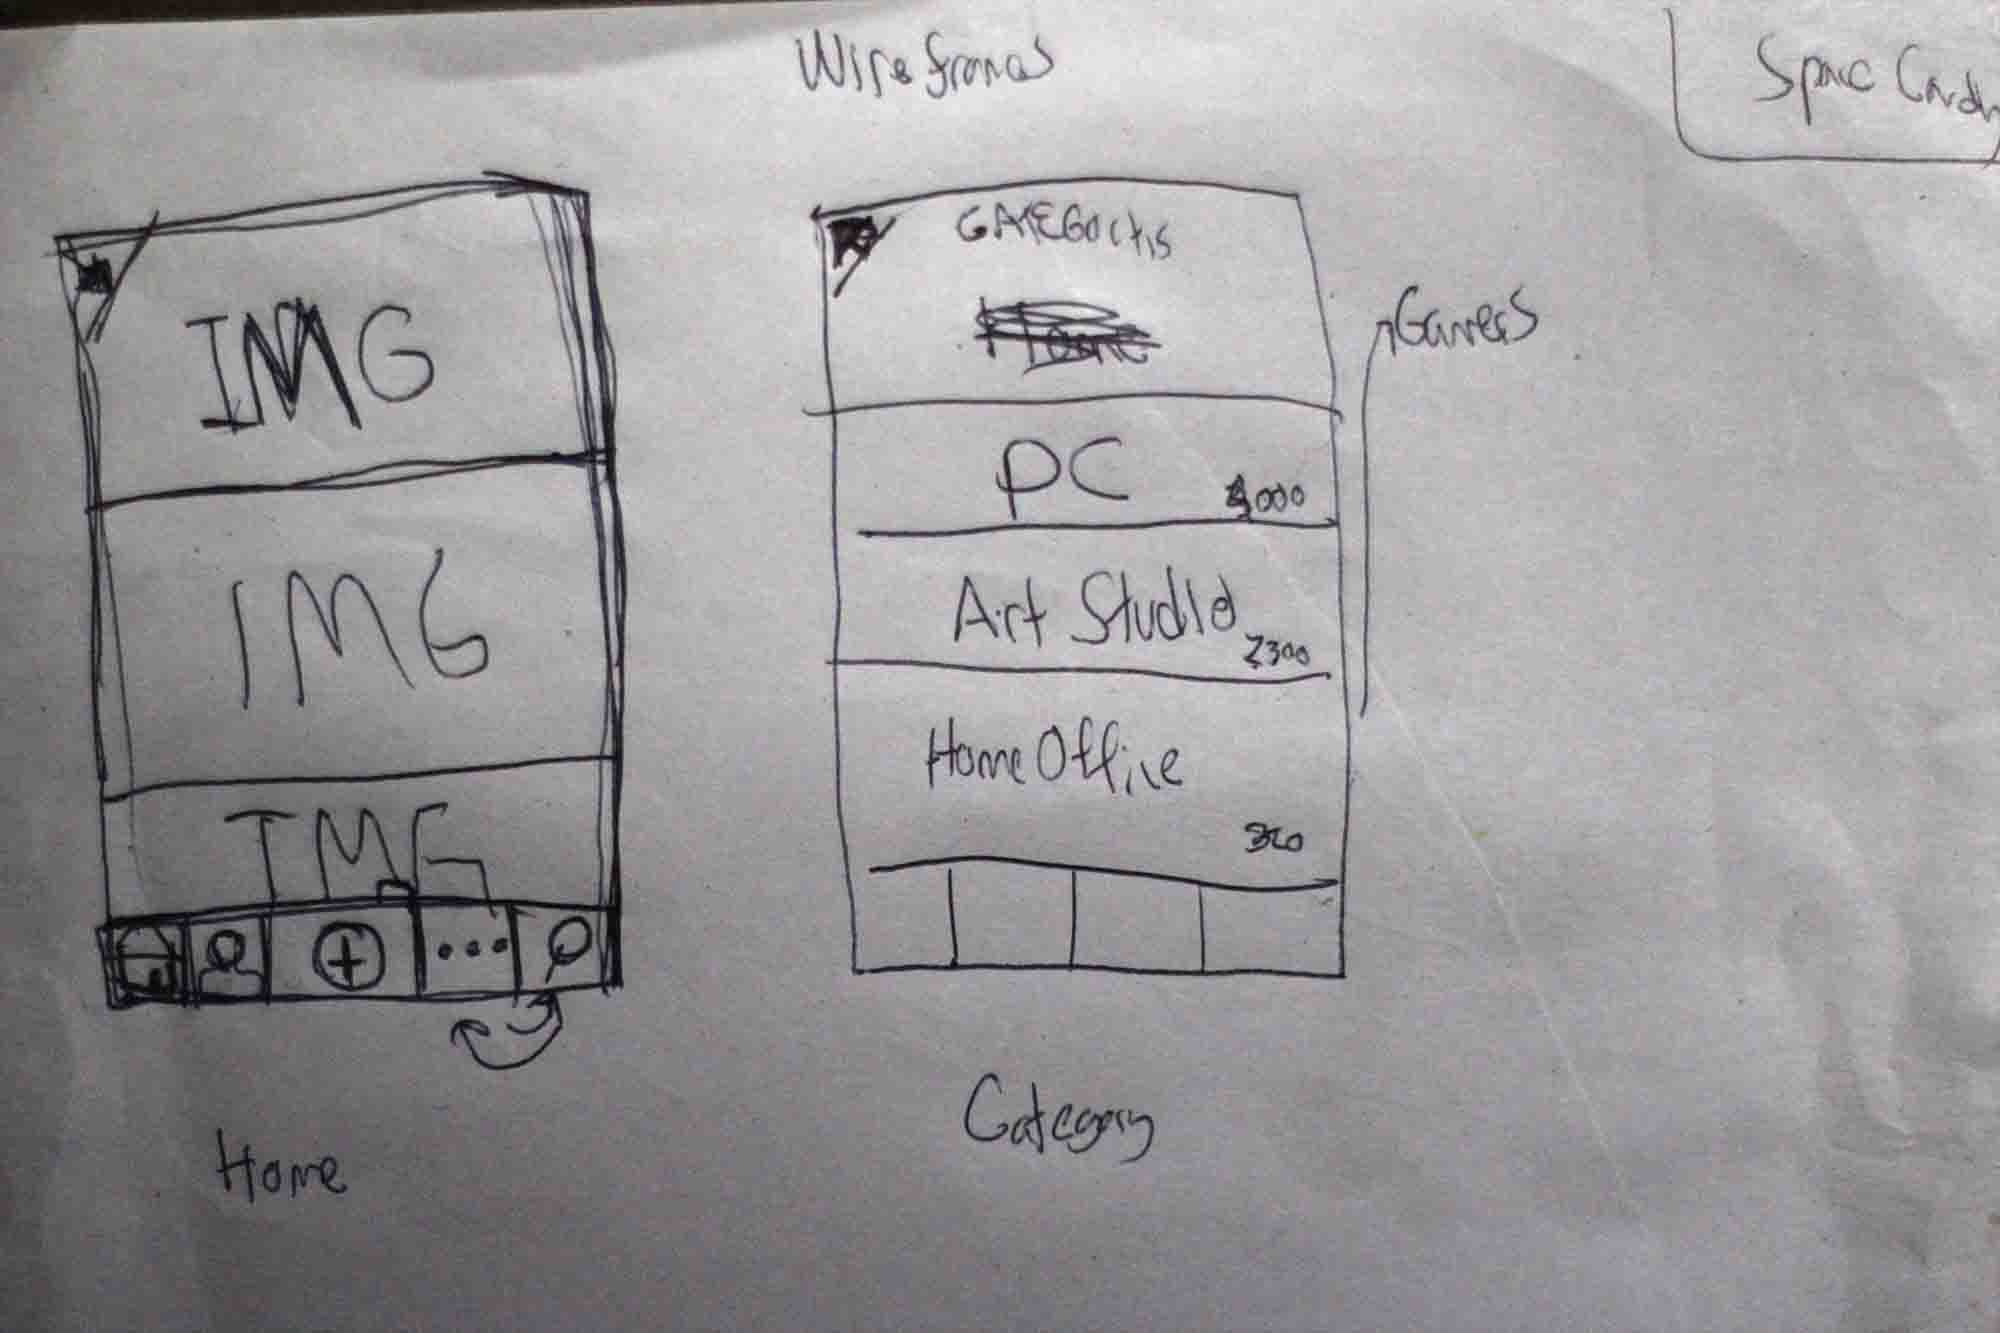 Wireframes
Space Candy
IMG
IMG
IMG
Home
CATEGORIS
Gamers
PC
Art Studio
2300
Home Office
320
Category